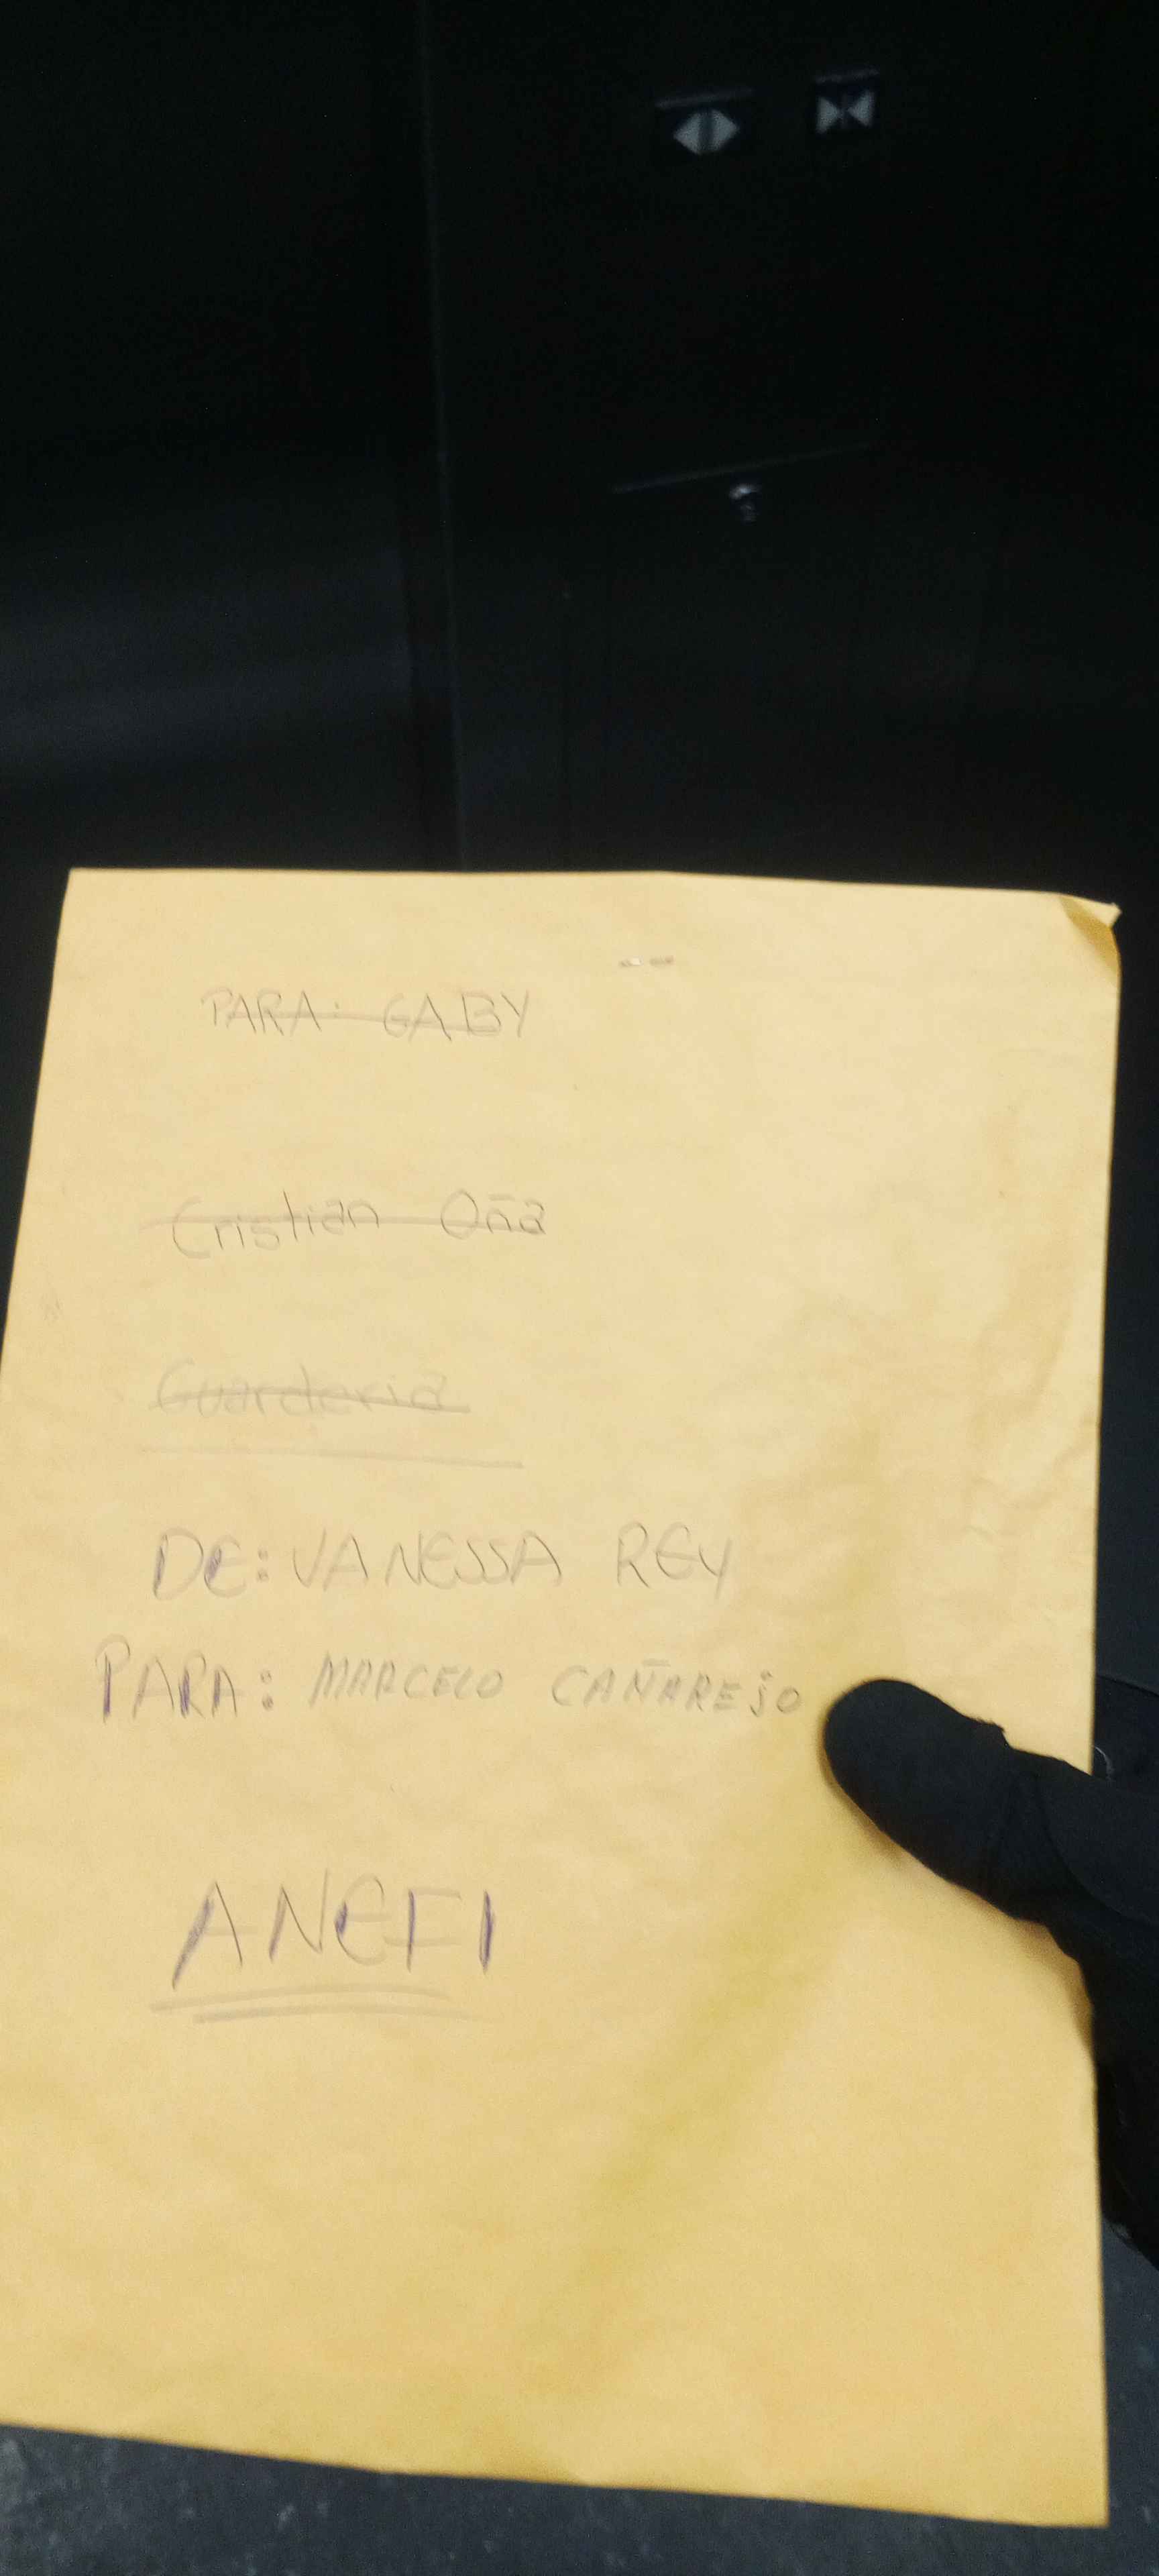 PARA: GABY
Cristian Oña
Guarderia
DE: VANESSA REY
PARA: MARCELO CAÑAREJO
ANEFI